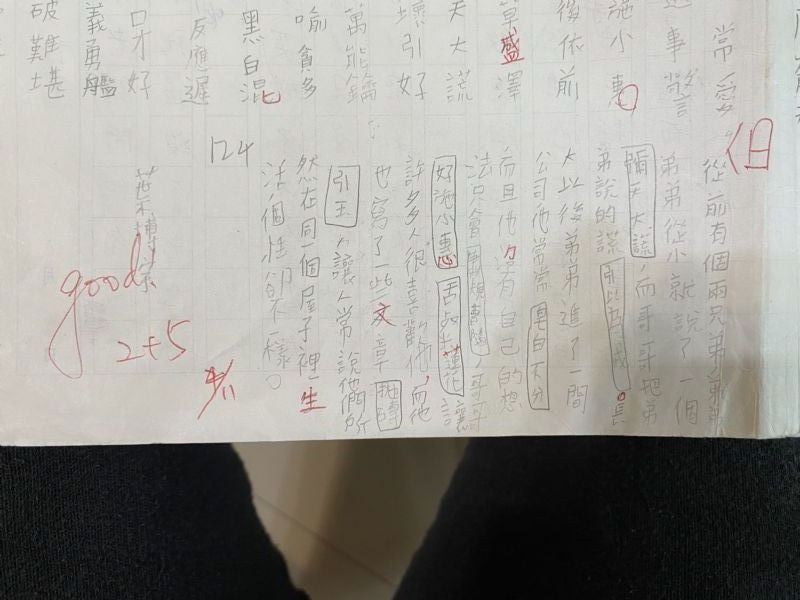 常愛
事警
施小惠
後依前
算盛澤
天大謊
壞引好
萬能鑰
喻貪多
黑白混
反應遲
口才好
義勇艦
破難堪
從前有個兩兄弟弟弟
弟弟從小就說了一個
彌天大謊,而哥哥把弟
弟說的謊
大以後弟弟進了一間
公司他常常皂白不分
而且他力沒有自己的想
法只會
好施小惠 舌粲蓮花 讓
許多人很喜歡他,而他
也寫了一些文章 拋磚
引玉,讓人常說他們所
然在同一個屋子裡生
活,個性卻不一樣。
124
good!
2+5
4/11